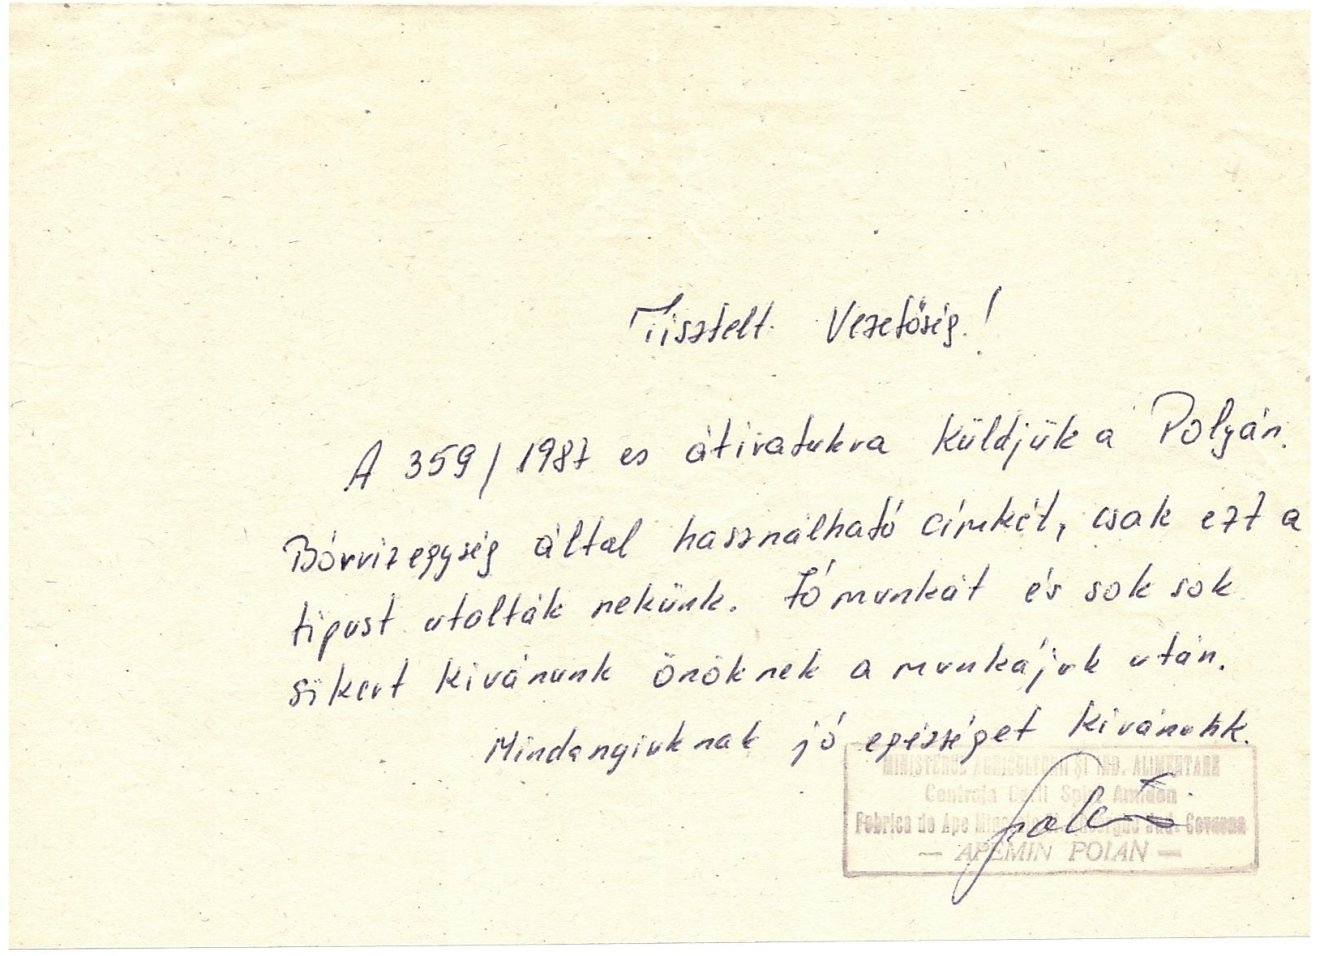 Tisztelt Vezetőség!
A 359/1987 es átiratukra küldjük a Polyán.
Bórvizegység által használható címkét, csak ezt a
tipust utalták nekünk. Jó munkát és sok sok
sikert kivánunk önöknek a munkájuk után.
Mindangiuknak jó egészséget kivánunk.
MINISTERUL AGRICULTURII ȘI IND. ALIMENTARE
Centrala Berii Spirt Amidon
Fabrica de Ape Gheorghe Jud. Covasna
— APEMIN POIAN —